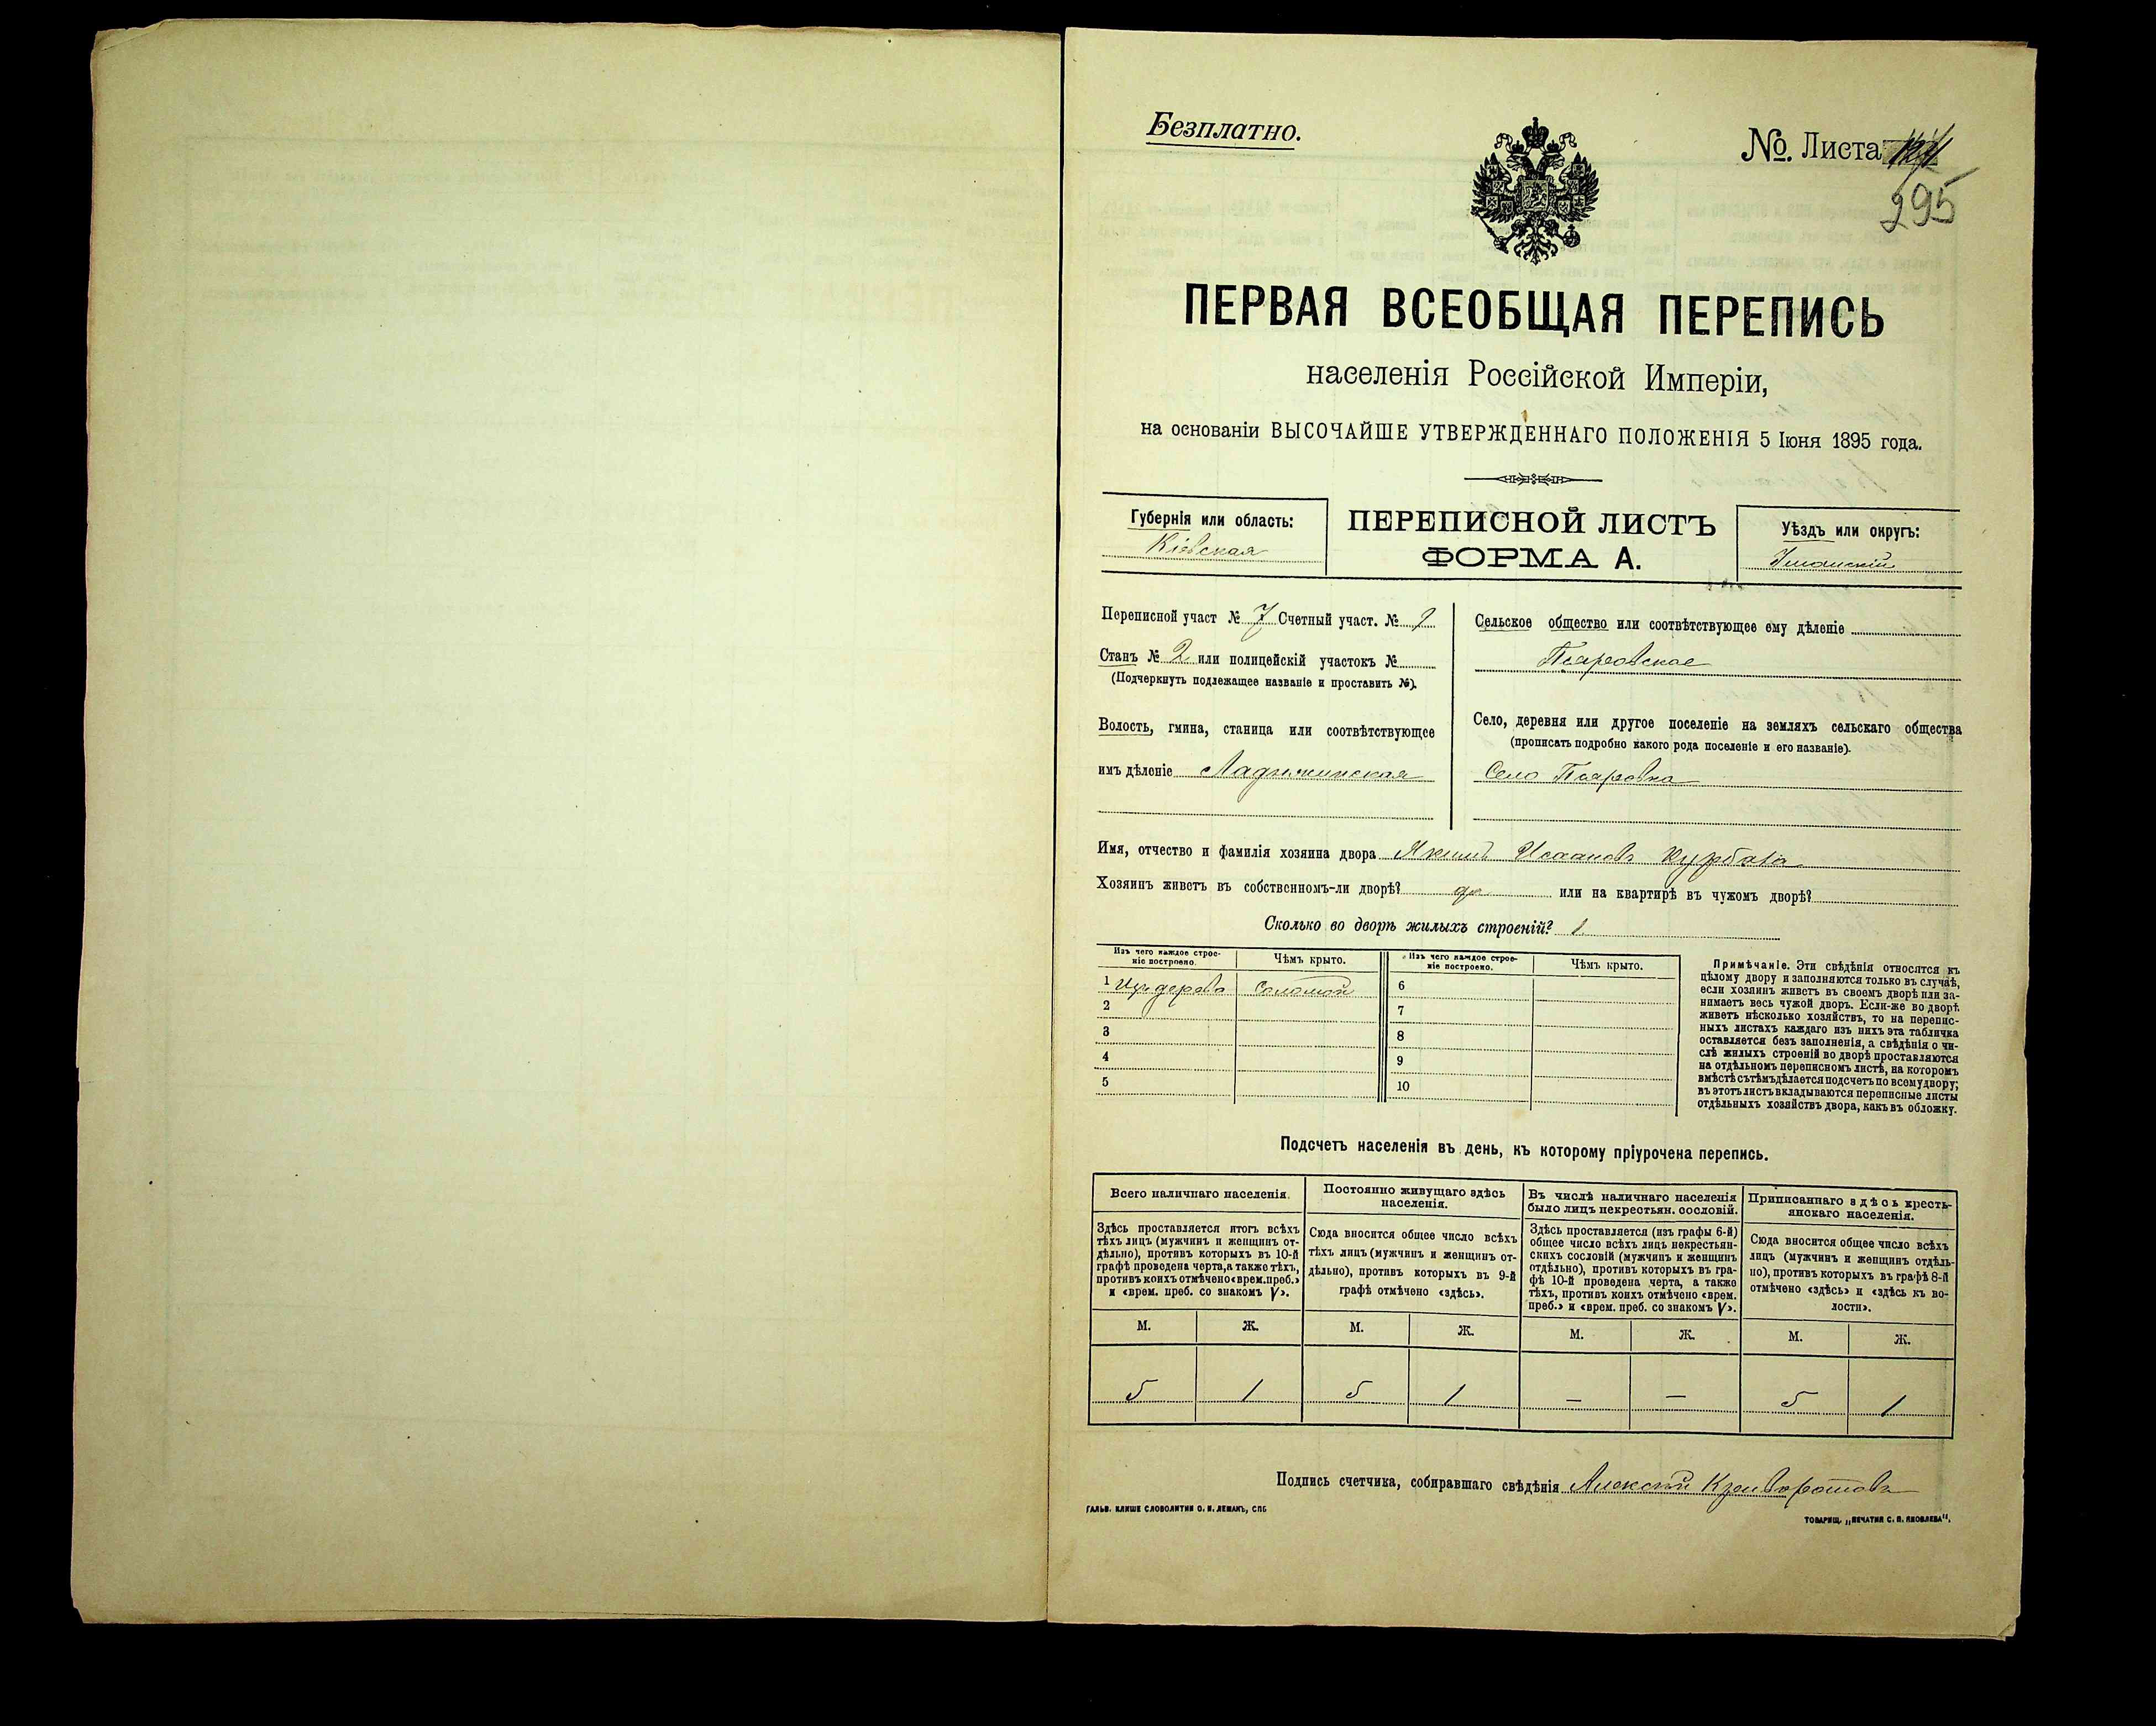 Безплатно.
№. Листа
295
ПЕРВАЯ ВСЕОБЩАЯ ПЕРЕПИСЬ
населенія Россійской Имперіи,
на основаніи ВЫСОЧАЙШЕ УТВЕРЖДЕННАГО ПОЛОЖЕНІЯ 5 Іюня 1895 года.
Губернія или область:
Кіевская
ПЕРЕПИСНОЙ ЛИСТЪ
ФОРМА А.
Уѣздъ или округъ:
Уманскій
Переписной участ № 7 Счетный участ. №
Станъ № 2 или полицейскій участокъ №
(Подчеркнуть подлежащее названіе и проставить №).
Волость, гмина, станица или соотвѣтствующее
имъ дѣленіе Ладыжинская
Сельское общество или соотвѣтствующее ему дѣленіе
Псяровское
Село, деревня или другое поселеніе на земляхъ сельскаго общества
(прописать подробно какого рода поселеніе и его названіе).
Село Псяровка
Имя, отчество и фамилія хозяина двора Якимъ Исааковъ
Хозяинъ живетъ въ собственномъ-ли дворѣ? да или на квартирѣ въ чужомъ дворѣ?
Сколько во дворѣ жилыхъ строеній? 1
Изъ чего каждое строе-
ніе построено.
Чѣмъ крыто.
Изъ чего каждое строе-
ніе построено.
Чѣмъ крыто.
1 Изъ дерева Соломой 6
2 7
3 8
4 9
5 10
Примѣчаніе. Эти свѣдѣнія относятся къ
цѣлому двору и заполняются только въ случаѣ,
если хозяинъ живетъ въ своемъ дворѣ или за-
нимаетъ весь чужой дворъ. Если-же во дворѣ
живетъ нѣсколько хозяйствъ, то на перепис-
ныхъ листахъ каждаго изъ нихъ эта табличка
оставляется безъ заполненія, а свѣдѣнія о чи-
слѣ жилыхъ строеній во дворѣ проставляются
на отдѣльномъ переписномъ листѣ, на которомъ
вмѣстѣ съ тѣмъ дѣлается подсчетъ по всему двору;
въ этотъ листъ вкладываются переписные листы
отдѣльныхъ хозяйствъ двора, какъ въ обложку.
Подсчетъ населенія въ день, къ которому пріурочена перепись.
Всего наличнаго населенія.
Здѣсь проставляется итогъ всѣхъ
тѣхъ лицъ (мужчинъ и женщинъ от-
дѣльно), противъ которыхъ въ 10-й
графѣ проведена черта, а также тѣхъ,
противъ коихъ отмѣчено «врем. преб.»
и «врем. преб. со знакомъ V».
Постоянно живущаго здѣсь
населенія.
Сюда вносится общее число всѣхъ
тѣхъ лицъ (мужчинъ и женщинъ от-
дѣльно), противъ которыхъ въ 9-й
графѣ отмѣчено «здѣсь».
Въ числѣ наличнаго населенія
было лицъ некрестьян. сословій.
Здѣсь проставляется (изъ графы 6-й)
общее число всѣхъ лицъ некрестьян-
скихъ сословій (мужчинъ и женщинъ
отдѣльно), противъ которыхъ въ гра-
фѣ 10-й проведена черта, а также
тѣхъ, противъ коихъ отмѣчено «врем.
преб.» и «врем. преб. со знакомъ V».
Приписаннаго здѣсь кресть-
янскаго населенія.
Сюда вносится общее число всѣхъ
лицъ (мужчинъ и женщинъ отдѣль-
но), противъ которыхъ въ графѣ 8-й
отмѣчено «здѣсь» и «здѣсь къ во-
лости».
М. Ж. М. Ж. М. Ж. М. Ж.
5 1 5 1 — — 5 1
Подпись счетчика, собиравшаго свѣдѣнія Алексѣй Криворотовъ
ГАЛЬВ. КЛИШЕ СЛОВОЛИТНИ О. И. ЛЕМАНЪ, СПБ
ТОВАРИЩ. „ПЕЧАТНЯ С. П. ЯКОВЛЕВА“.